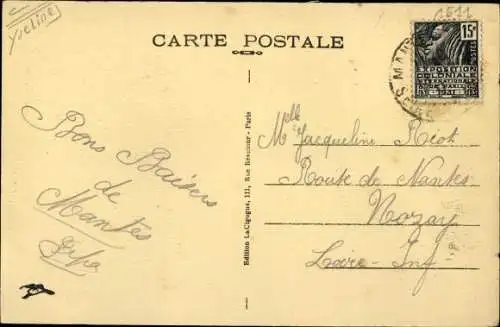 Yveline
1511
CARTE POSTALE
15c
POSTES
EXPOSITION
COLONIALE
INTERNATIONALE
Bons Baisers
de
Mantes
Edition LaCigogne, 111, Rue Réaumur - Paris
Mlle Jacqueline Riot
Route de Nantes
Nozay
Loire-Inf